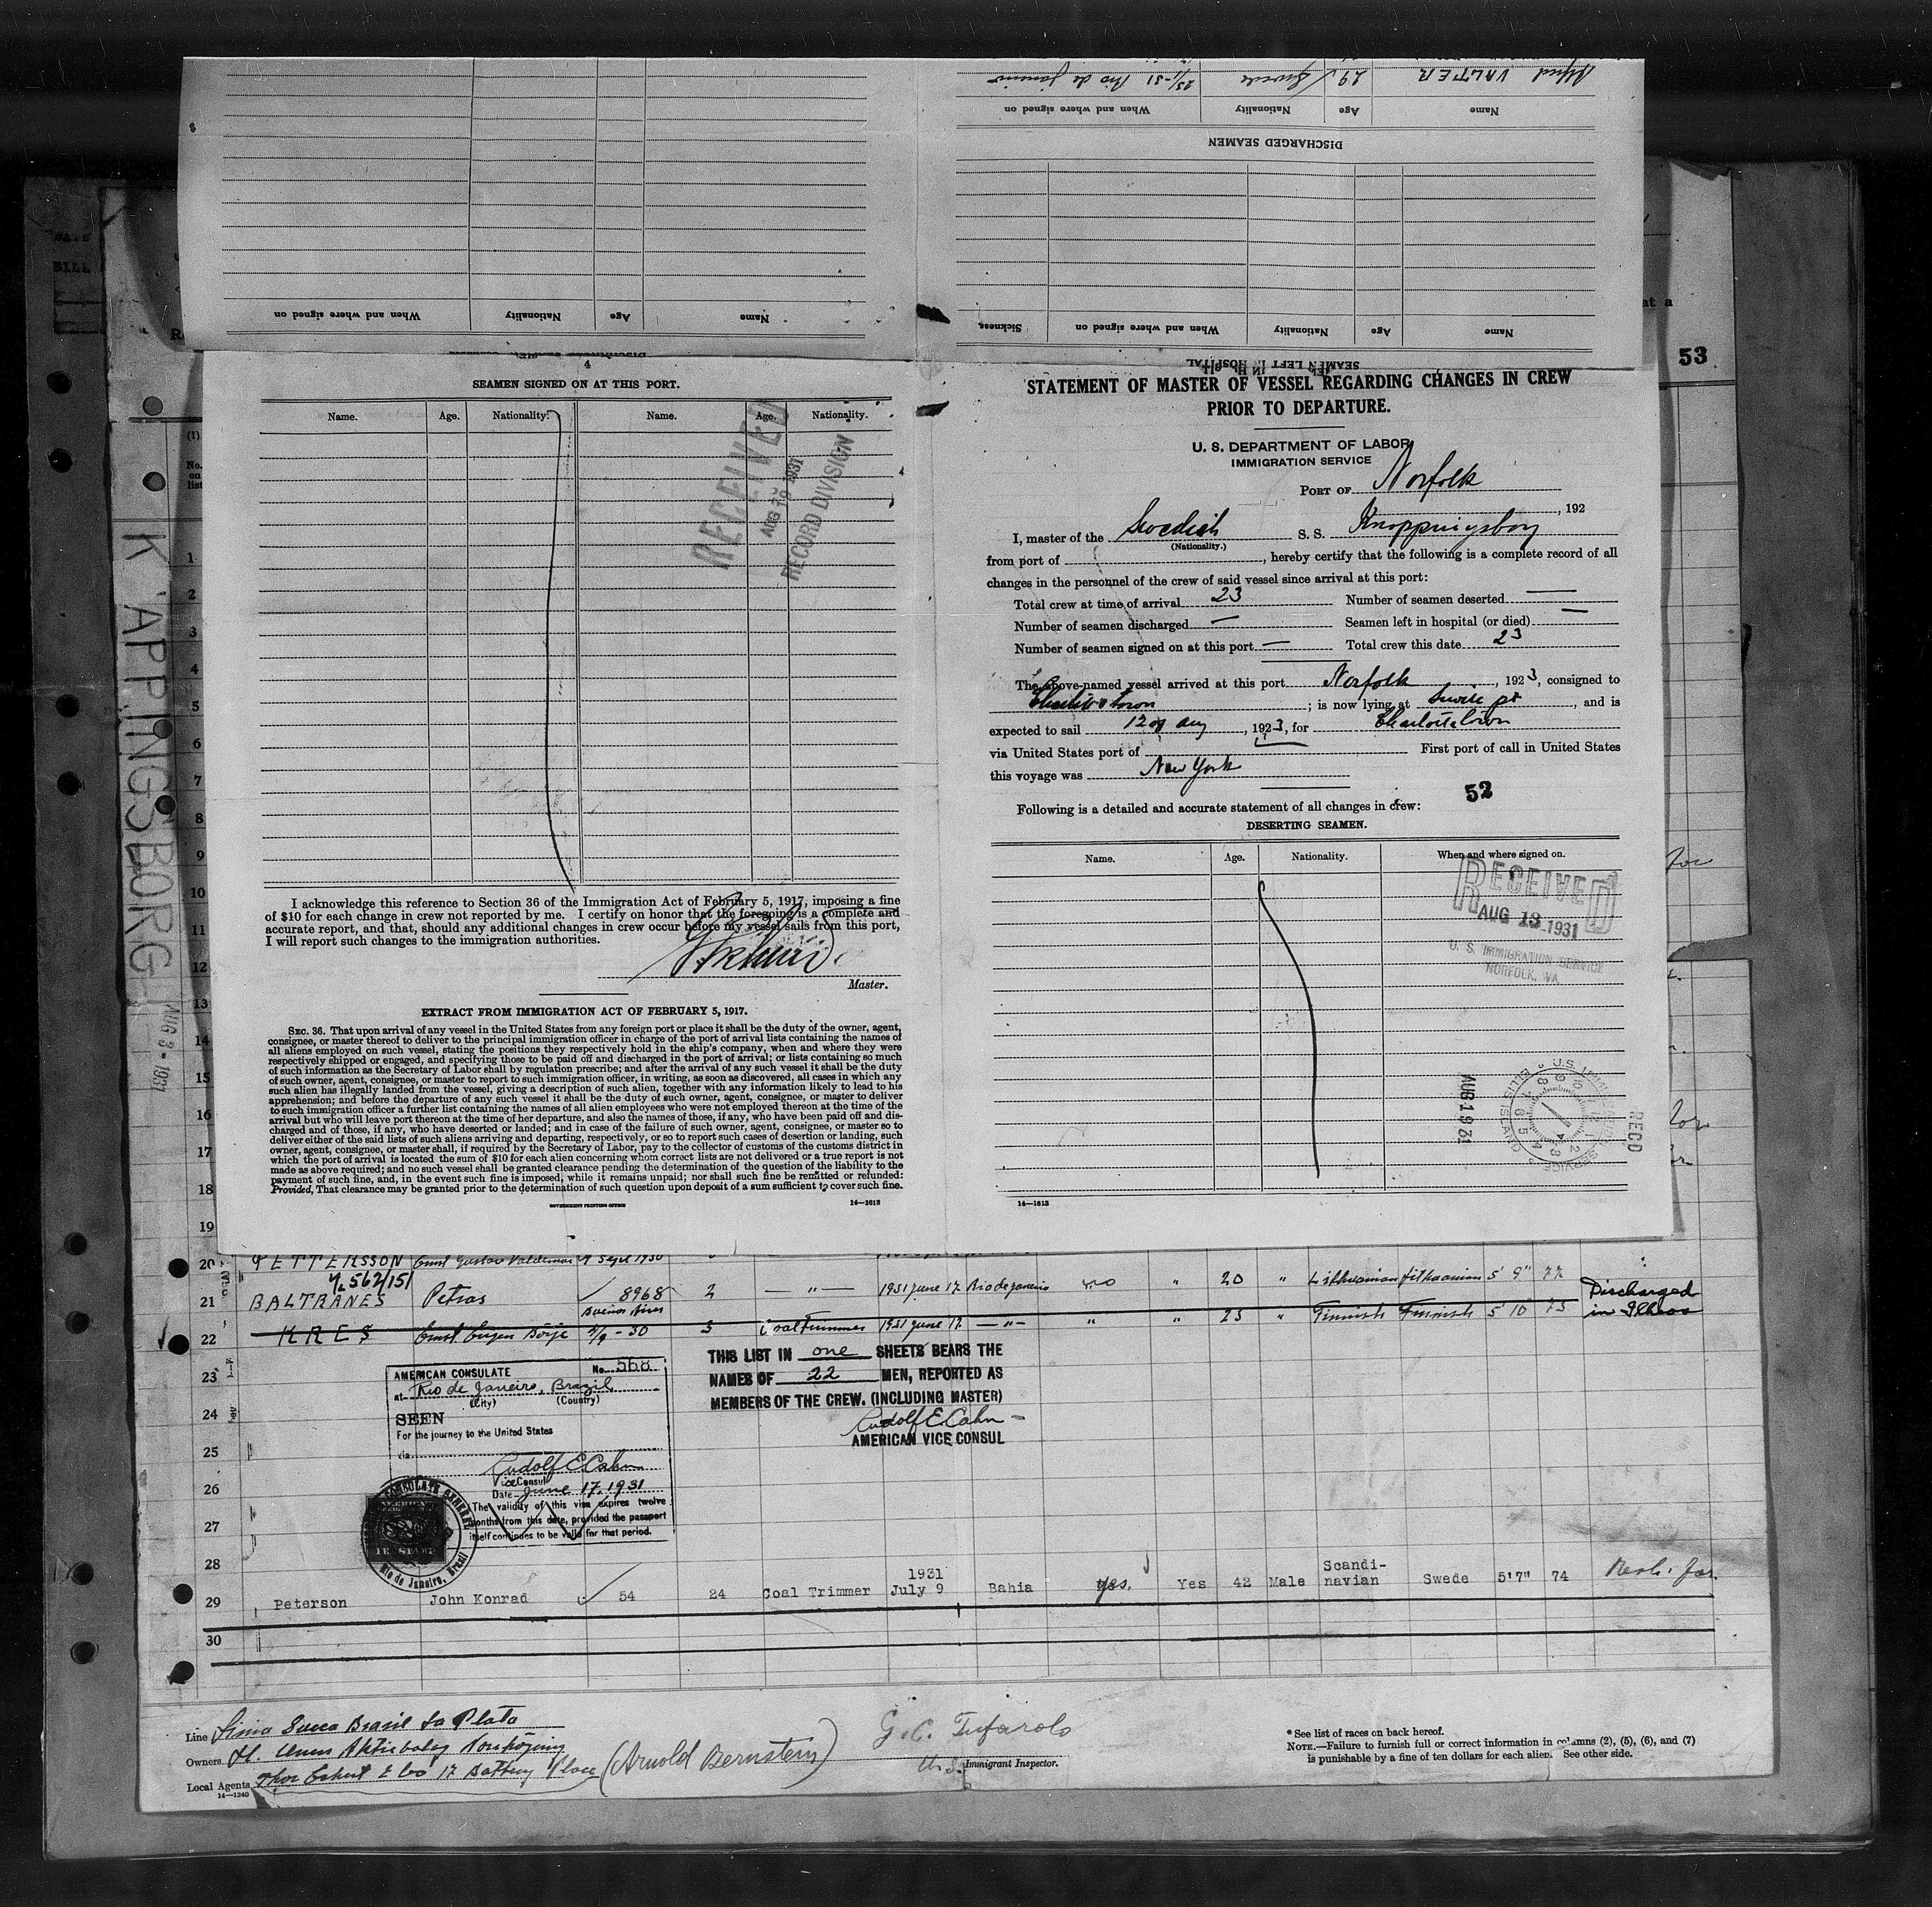 Alfred VALTER 29 Swede 23/1-31 Rio de Janeiro
Name Age Nationality When and where signed on
DISCHARGED SEAMEN
Name Age Nationality When and where signed on Sickness
SEAMEN LEFT IN HOSPITAL
Name Age Nationality When and where signed on
53
4
SEAMEN SIGNED ON AT THIS PORT.
Name. Age. Nationality. Name. Age. Nationality.
RECEIVED
AUG 19 1931
RECORD DIVISION
I acknowledge this reference to Section 36 of the Immigration Act of February 5, 1917, imposing a fine
of $10 for each change in crew not reported by me. I certify on honor that the foregoing is a complete and
accurate report, and that, should any additional changes in crew occur before my vessel sails from this port,
I will report such changes to the immigration authorities.
Master.
EXTRACT FROM IMMIGRATION ACT OF FEBRUARY 5, 1917.
SEC. 36. That upon arrival of any vessel in the United States from any foreign port or place it shall be the duty of the owner, agent,
consignee, or master thereof to deliver to the principal immigration officer in charge of the port of arrival lists containing the names of
all aliens employed on such vessel, stating the positions they respectively hold in the ship's company, when and where they were
respectively shipped or engaged, and specifying those to be paid off and discharged in the port of arrival; or lists containing so much
of such information as the Secretary of Labor shall by regulation prescribe; and after the arrival of any such vessel it shall be the duty
of such owner, agent, consignee, or master to report to such immigration officer, in writing, as soon as discovered, all cases in which any
such alien has illegally landed from the vessel, giving a description of such alien, together with any information likely to lead to his
apprehension; and before the departure of any such vessel it shall be the duty of such owner, agent, consignee, or master to deliver
to such immigration officer a further list containing the names of all alien employees who were not employed thereon at the time of the
arrival but who will leave port thereon at the time of her departure, and also the names of those, if any, who have been paid off and dis-
charged and of those, if any, who have deserted or landed; and in case of the failure of such owner, agent, consignee, or master so to
deliver either of the said lists of such aliens arriving and departing, respectively, or so to report such cases of desertion or landing, such
owner, agent, consignee, or master, shall, if required by the Secretary of Labor, pay to the collector of customs of the customs district in
which the port of arrival is located the sum of $10 for each alien concerning whom correct lists are not delivered or a true report is not
made as above required; and no such vessel shall be granted clearance pending the determination of the question of the liability to the
payment of such fine, and, in the event such fine is imposed, while it remains unpaid; nor shall such fine be remitted or refunded:
Provided, That clearance may be granted prior to the determination of such question upon deposit of a sum sufficient to cover such fine.
GOVERNMENT PRINTING OFFICE 14—1613
STATEMENT OF MASTER OF VESSEL REGARDING CHANGES IN CREW
PRIOR TO DEPARTURE.
U. S. DEPARTMENT OF LABOR
IMMIGRATION SERVICE
PORT OF Norfolk
, 192
I, master of the Swedish S. S. Knoppingsborg
(Nationality.)
from port of , hereby certify that the following is a complete record of all
changes in the personnel of the crew of said vessel since arrival at this port:
Total crew at time of arrival 23 Number of seamen deserted —
Number of seamen discharged — Seamen left in hospital (or died) —
Number of seamen signed on at this port — Total crew this date 23
The above-named vessel arrived at this port Norfolk , 1923, consigned to
; is now lying at , and is
expected to sail 12 Aug , 1923, for Charlottetown
via United States port of First port of call in United States
this voyage was New York
52
Following is a detailed and accurate statement of all changes in crew:
DESERTING SEAMEN.
Name. Age. Nationality. When and where signed on.
RECEIVED
AUG 13 1931
U. S. IMMIGRATION SERVICE
NORFOLK, VA
RECD
14—1613
(1)
No. on list
KAPPINGSBORG
AUG 3 - 1931
1
2
3
4
5
6
7
8
9
10
11
12
13
14
15
16
17
18
19
20 PETTERSSON Ernst Gustav Valdemar 9 Sept 1930
21 BALTRANES Petras 8968 2 — " — 1931 June 17 Rio de Janeiro no " 20 " Lithuanian Lithuanian 5' 9" 77
Discharged
22 KRES Ernst Eugen Börje Buenos Aires 2/9 - 30 3 Coal Trimmer 1931 June 17 — " — " " 23 " Finnish Finnish 5' 10" 75
23
24
25
26
27
28
AMERICAN CONSULATE No. 568
at Rio de Janeiro, Brazil
(City) (Country)
SEEN
For the journey to the United States
via
Rudolf E. Cahn
Vice Consul
Date June 17, 1931
The validity of this visa expires twelve
months from this date, provided the passport
itself continues to be valid for that period.
THIS LIST IN one SHEETS BEARS THE
NAMES OF 22 MEN, REPORTED AS
MEMBERS OF THE CREW. (INCLUDING MASTER)
Rudolf E. Cahn
AMERICAN VICE CONSUL
29 Peterson John Konrad 54 24 Coal Trimmer 1931 July 9 Bahia yes. Yes 42 Male Scandi-navian Swede 5'7" 74
30
Line Linea Sueca Brasil La Plata
Owners
Local Agents Thor Eckert & Co 17 Battery Place (Arnold Bernstein)
14—1240
G. C. Tufarolo
U.S. Immigrant Inspector.
* See list of races on back hereof.
NOTE.—Failure to furnish full or correct information in columns (2), (5), (6), and (7)
is punishable by a fine of ten dollars for each alien. See other side.